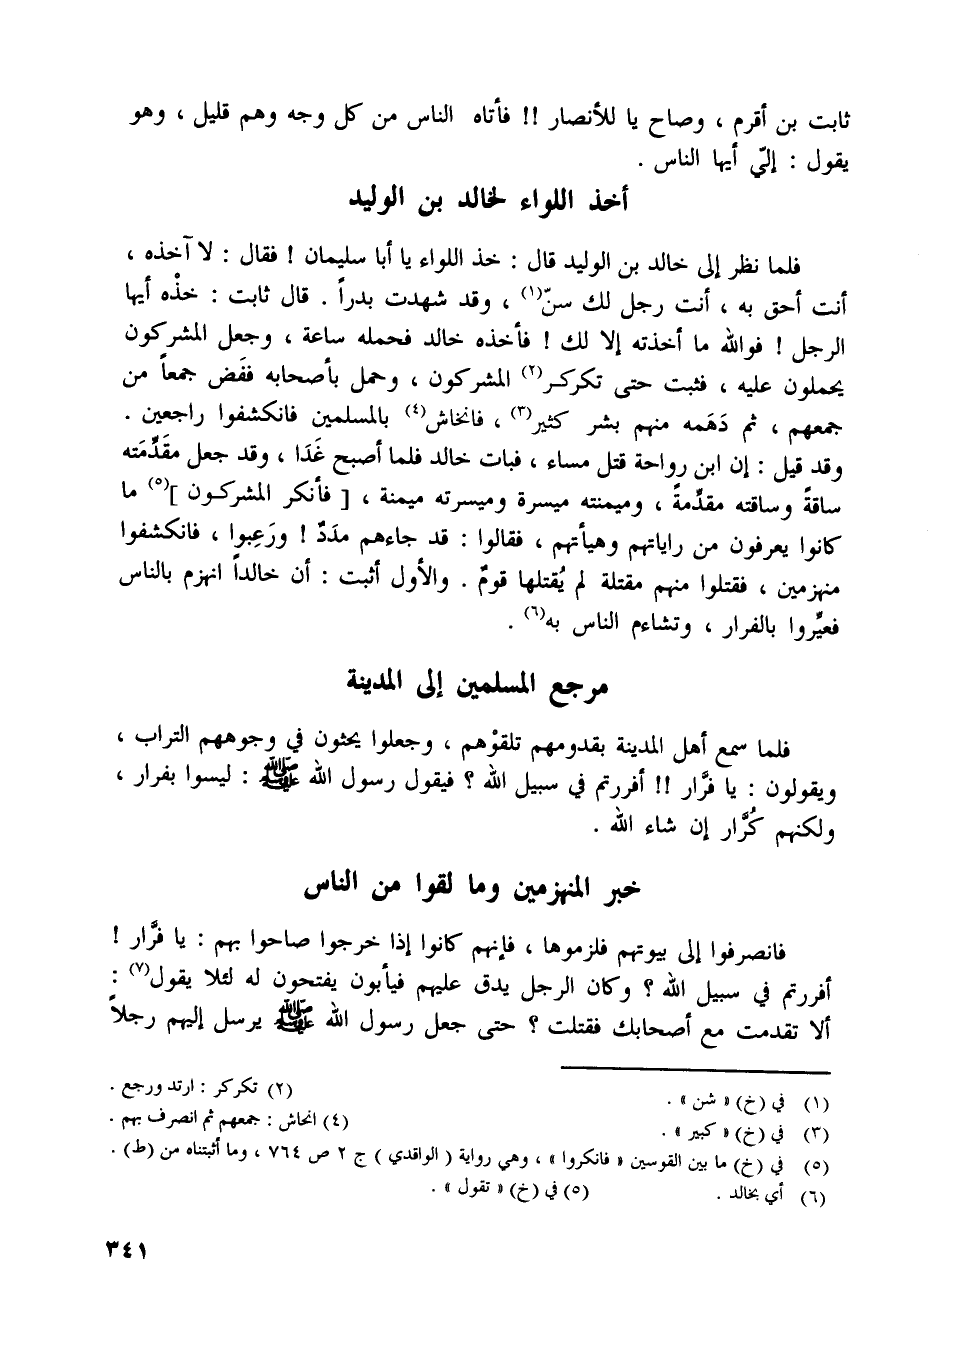 ثابت بن أقرم ، وصاح يا للأنصار !! فأتاه الناس من كل وجه وهم قليل ، وهو
يقول : إليّ أيها الناس .
أخذ اللواء لخالد بن الوليد
فلما نظر إلى خالد بن الوليد قال : خذ اللواء يا أبا سليمان ! فقال : لا آخذه ،
أنت أحق به ، أنت رجل لك سنّ(١) ، وقد شهدت بدراً . قال ثابت : خذْه أيها
الرجل ! فوالله ما أخذته إلا لك ! فأخذه خالد فحمله ساعة ، وجعل المشركون
يحملون عليه ، فثبت حتى تكركـر(٢) المشركون ، وحمل بأصحابه ففَض جمعاً من
جمعهم ، ثم دَهَمه منهم بشر كثير(٣) ، فانحاش(٤) بالمسلمين فانكشفوا راجعين .
وقد قيل : إن ابن رواحة قتل مساء ، فبات خالد فلما أصبح غَدَا ، وقد جعل مقَدِّمَته
ساقةً وساقته مقدِّمةً ، وميمنته ميسرة وميسرته ميمنة ، [ فأنكر المشركـون ](٥) ما
كانوا يعرفون من راياتهم وهيأتهم ، فقالوا : قد جاءهم مدَدٌ ! ورَعِبوا ، فانكشفوا
منهزمين ، فقتلوا منهم مقتلة لم يُقتلها قومٌ . والأول أثبت : أن خالداً انهزم بالناس
فعيِّروا بالفرار ، وتشاءم الناس به(٦) .
مرجع المسلمين إلى المدينة
فلما سمع أهل المدينة بقدومهم تلقوْهم ، وجعلوا يحثون في وجوههم التراب ،
ويقولون : يا فرَّار !! أفررتم في سبيل الله ؟ فيقول رسول الله ﷺ : ليسوا بفرار ،
ولكنهم كُرَّار إن شاء الله .
خبر المنهزمين وما لقوا من الناس
فانصرفوا إلى بيوتهم فلزموها ، فإنهم كانوا إذا خرجوا صاحوا بهم : يا فرَّار !
أفررتم في سبيل الله ؟ وكان الرجل يدق عليهم فيأبون يفتحون له لئلا يقول(٧) :
ألا تقدمت مع أصحابك فقتلت ؟ حتى جعل رسول الله ﷺ يرسل إليهم رجلاً
(١) في (خ) « شن » . (٢) تكركر : ارتد ورجع .
(٣) في (خ) « كبير » . (٤) انحاش : جمعهم ثم انصرف بهم .
(٥) في (خ) ما بين القوسين « فانكروا » ، وهي رواية ( الواقدي ) ج ٢ ص ٧٦٤ ، وما أثبتناه من (ط) .
(٦) أي بخالد . (٥) في (خ) « تقول » .
٣٤١